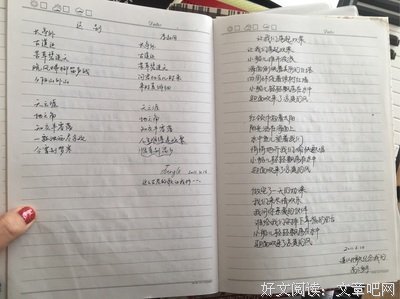 Date
送别
李叔同
长亭外
古道边
芳草碧连天
晚风拂柳笛声残
夕阳山外山
天之涯
地之角
知交半零落
一瓢浊酒尽余欢
今宵别梦寒
长亭外
古道边
芳草碧连天
问君此去几时来
来时莫徘徊
天之涯
地之角
知交半零落
人生难得是欢聚
惟有别离多
2011.6.14
这么古老的歌
Date
让我们荡起双桨
让我们荡起双桨
小船儿推开波浪
海面倒映着美丽的白塔
四周环绕着绿树红墙
小船儿轻轻飘荡在水中
迎面吹来了凉爽的风
红领巾迎着太阳
阳光洒在海面上
水中鱼儿望着我们
悄悄地听我们愉快歌唱
小船儿轻轻飘荡在水中
迎面吹来了凉爽的风
做完了一天的功课
我们来尽情欢乐
我问你亲爱的伙伴
谁给我们安排下幸福的生活
小船儿轻轻飘荡在水中
迎面吹来了凉爽的风
2011.6.14
好文阅读：文章吧网